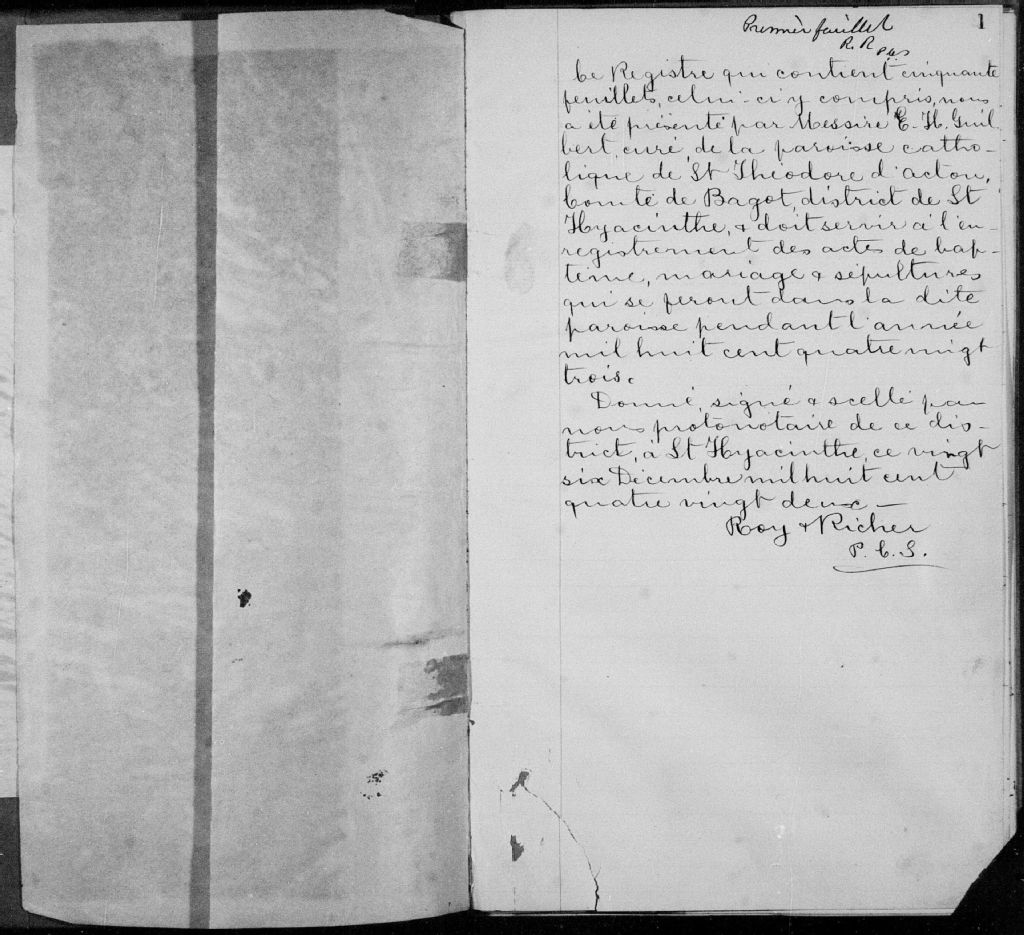 1
Premier feuillet
R. R. pcs
Ce Registre qui contient cinquante
feuillets, celui-ci y compris, nous
a été présenté par Messire E. H. Guil
bert, curé, de la paroisse catho-
lique de St Théodore d'acton,
Comté de Bagot, district de St
Hyacinthe, & doit servir à l'en-
registrement des actes de bap-
tême, mariage & sépultures
qui se feront dans la dite
paroisse pendant l'année
mil huit cent quatre vingt
trois.
Donné, signé & scellé par
nous protonotaire de ce dis-
trict, à St Hyacinthe, ce vingt
six Décembre mil huit cent
quatre vingt deux —
Roy & Richer
P. C. S.